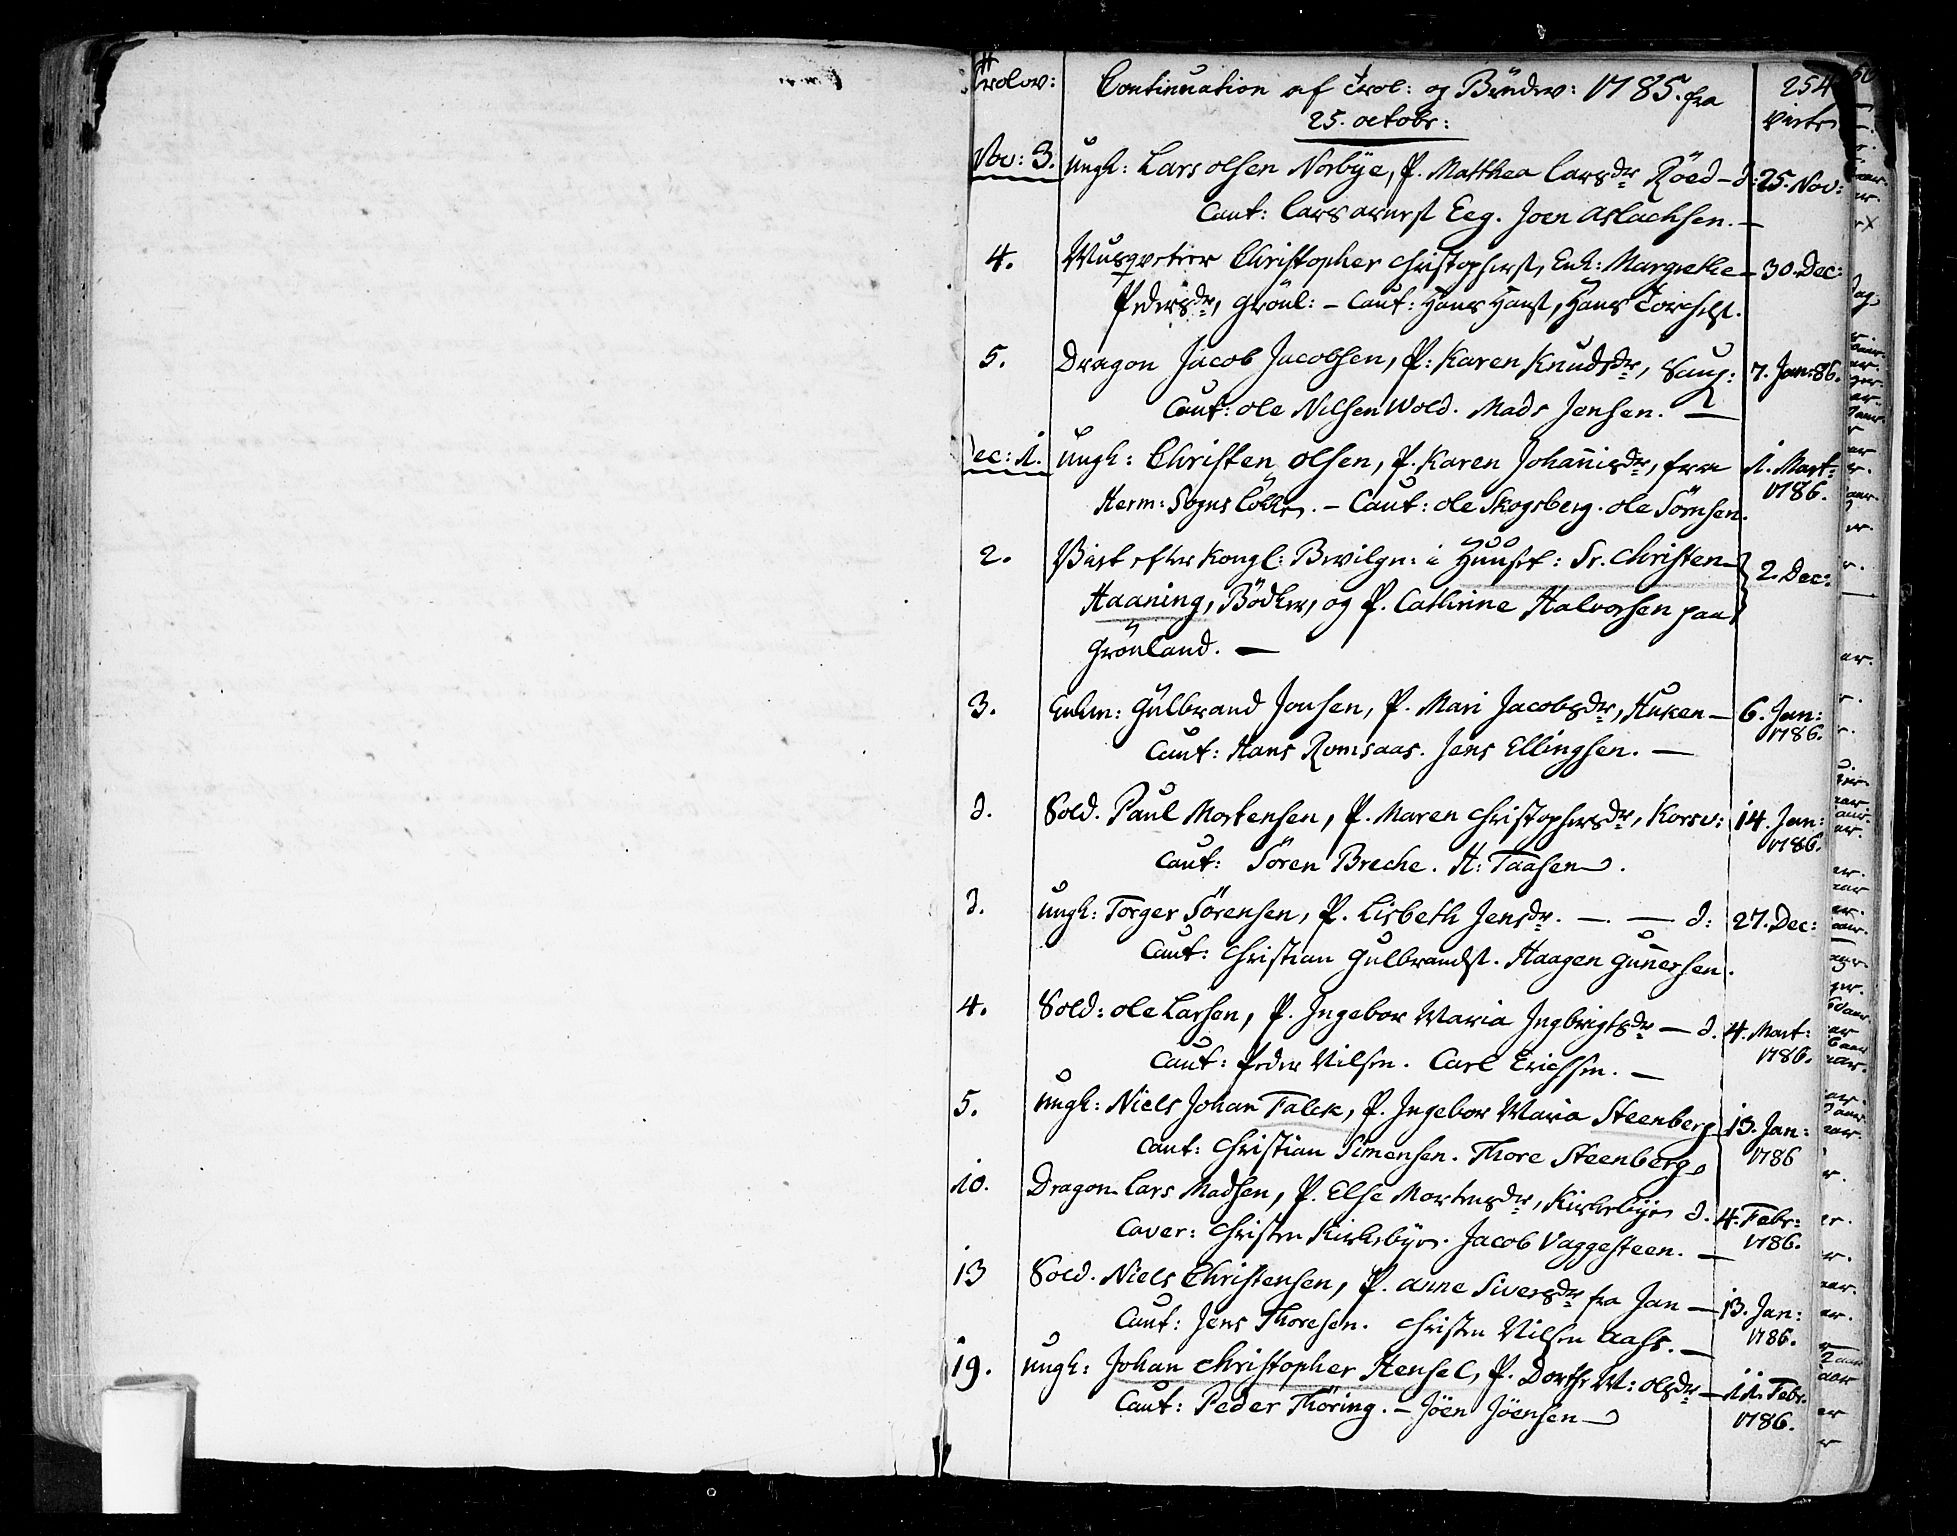 Trolov: Continuation af Trol: og Brudev: 1785. fra 254
25. octobr: Viets
Nov: 3. ungk: Lars olsen Norbÿe, P. Matthea Larsdr Röed - d: 25. Nov:
Caut: Lars arnest Eeg. Joen Aslachsen. -
4. Musqveteer Christopher Christopherst, Enk: Margrethe - 30. Dec:
Pedersdr, Grönl: - Caut: Hans Hanst, Hans Torchelst.
5. Dragon Jacob Jacobsen, P: Karen Knudsdr, 7. Jan: 86.
Caut: ole Nilsen Wold. Mads Jensen. -
Dec: 1. ungk: Christen olsen, P. Karen Johannisdr, fra 1. Mart:
Herm: Sogns Lökke. - Caut: ole Skogsberg. ole Sörnsen. 1786.
2. Viet efter Kongl: Bevilgn: i Huuset: Sr. Christen 2. Dec:
Haaning, Bödker, og P. Cathrine Halvorsen paa
Grönland. -
3. Enkm: Gulbrand Jonsen, P. Mari Jacobsdr, Huken - 6. Jan:
1786.
Caut: Hans Romsaas. Jens Ellingsen. -
d. Sold. Paul Mortensen, P. Maren Christophersdr, Korsv: 14. Jan:
1786.
Caut: Sören Breche. H: Taasen.
d. ungk: Torger Sörensen, P. Lisbeth Jensdr. - - d: 27. Dec:
Caut: Christian Gulbrandst. Haagen Gunersen.
4. Sold: ole Larsen, P. Ingebor Maria Ingbrigtsdr - d. 4. Mart:
1786.
Caut: Peder Nilsen. Carl Erichsen. -
5. ungk: Niels Johan Falck, P. Ingebor Maria Steenberg 13. Jan:
Caut: Christian Simensen. Thore Steenberg 1786
10. Dragon Lars Madsen, P. Else Mortensdr, Kirkebÿe d. 4. Febr:
Caver: Christen Kirkebÿe. Jacob Vaggesteen. - 1786.
13 Sold. Niels Christensen, P. anne Siversdr fra Jan - 13. Jan:
Caut: Jens Thoresen. Christen Nilsen Aass. - 1786.
19. ungk: Johan Christopher Hensel, P. Dorthe M: olsdr - 11. Febr.
Caut: Peder Thöring. - Jöen Jöensen 1786.